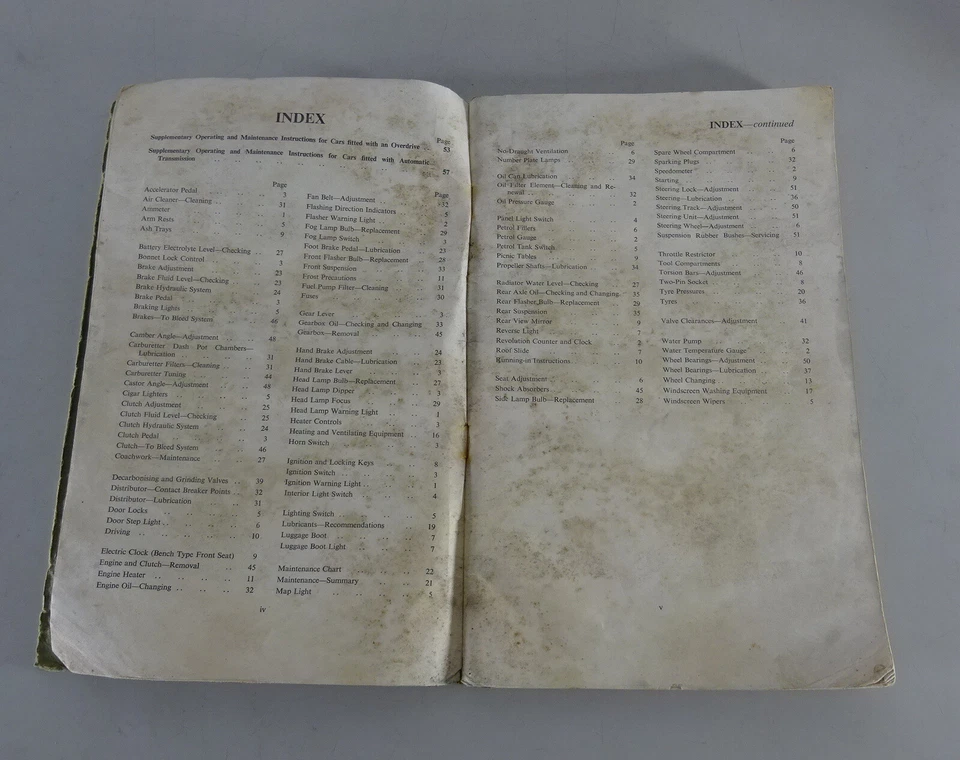 INDEX
Page
Supplementary Operating and Maintenance Instructions for Cars fitted with an Overdrive .. 53
Supplementary Operating and Maintenance Instructions for Cars fitted with Automatic
Transmission .. .. .. .. .. .. .. 57
Page
Accelerator Pedal .. .. 3
Air Cleaner—Cleaning .. .. 31
Ammeter .. .. 1
Arm Rests .. .. 5
Ash Trays .. .. 9
Battery Electrolyte Level—Checking .. 27
Bonnet Lock Control .. .. 3
Brake Adjustment .. .. 23
Brake Fluid Level—Checking .. 23
Brake Hydraulic System .. .. 24
Brake Pedal .. .. 3
Braking Lights .. .. 5
Brakes—To Bleed System .. .. 46
Camber Angle—Adjustment .. .. 48
Carburetter Dash Pot Chambers—
Lubrication .. .. 31
Carburetter Filters—Cleaning .. .. 31
Carburetter Tuning .. .. 44
Castor Angle—Adjustment .. .. 48
Cigar Lighters .. .. 5
Clutch Adjustment .. .. 25
Clutch Fluid Level—Checking .. .. 25
Clutch Hydraulic System .. .. 24
Clutch Pedal .. .. 3
Clutch—To Bleed System .. .. 46
Coachwork—Maintenance .. .. 27
Decarbonising and Grinding Valves .. 39
Distributor—Contact Breaker Points .. 32
Distributor—Lubrication .. .. 31
Door Locks .. .. 5
Door Step Light .. .. 6
Driving .. .. 10
Electric Clock (Bench Type Front Seat) 9
Engine and Clutch—Removal .. .. 45
Engine Heater .. .. .. .. 11
Engine Oil—Changing .. .. .. 32
Page
Fan Belt—Adjustment .. .. 32
Flashing Direction Indicators .. 5
Flasher Warning Light .. .. 2
Fog Lamp Bulb—Replacement .. 29
Fog Lamp Switch .. .. 3
Foot Brake Pedal—Lubrication .. 23
Front Flasher Bulb—Replacement .. 28
Front Suspension .. .. 33
Frost Precautions .. .. 11
Fuel Pump Filter—Cleaning .. .. 31
Fuses .. .. 30
Gear Lever .. .. 3
Gearbox Oil—Checking and Changing 33
Gearbox—Removal .. .. 45
Hand Brake Adjustment .. .. 24
Hand Brake Cable—Lubrication .. 23
Hand Brake Lever .. .. 3
Head Lamp Bulb—Replacement .. 27
Head Lamp Dipper .. .. 3
Head Lamp Focus .. .. 29
Head Lamp Warning Light .. .. 1
Heater Controls .. .. 3
Heating and Ventilating Equipment .. 16
Horn Switch .. .. 3
Ignition and Locking Keys .. .. 8
Ignition Switch .. .. 3
Ignition Warning Light .. .. 1
Interior Light Switch .. .. 4
Lighting Switch .. .. 5
Lubricants—Recommendations .. 19
Luggage Boot .. .. 7
Luggage Boot Light .. .. 7
Maintenance Chart .. .. 22
Maintenance—Summary .. .. 21
Map Light .. .. .. .. 5
iv
INDEX—continued
Page
No-Draught Ventilation .. 6
Number Plate Lamps .. .. 29
Oil Can Lubrication .. .. 34
Oil Filter Element—Cleaning and Re-
newal .. .. 32
Oil Pressure Gauge .. .. 2
Panel Light Switch .. .. 4
Petrol Fillers .. .. 6
Petrol Gauge .. .. 2
Petrol Tank Switch .. .. 5
Picnic Tables .. .. 9
Propeller Shafts—Lubrication .. 34
Radiator Water Level—Checking .. 27
Rear Axle Oil—Checking and Changing 35
Rear Flasher Bulb—Replacement .. 29
Rear Suspension .. .. 35
Rear View Mirror .. .. 9
Reverse Light .. .. 7
Revolution Counter and Clock .. 2
Roof Slide .. .. 7
Running-in Instructions .. .. 10
Seat Adjustment .. .. 6
Shock Absorbers .. .. 45
Side Lamp Bulb—Replacement .. 28
Page
Spare Wheel Compartment .. .. 6
Sparking Plugs .. .. 32
Speedometer .. .. 2
Starting .. .. 9
Steering Lock—Adjustment .. 51
Steering—Lubrication .. .. 36
Steering Track—Adjustment .. 50
Steering Unit—Adjustment .. 51
Steering Wheel—Adjustment .. 6
Suspension Rubber Bushes—Servicing 51
Throttle Restrictor .. .. 10
Tool Compartments .. .. 8
Torsion Bars—Adjustment .. .. 46
Two-Pin Socket .. .. 8
Tyre Pressures .. .. 20
Tyres .. .. 36
Valve Clearances—Adjustment .. 41
Water Pump .. .. 32
Water Temperature Gauge .. .. 2
Wheel Bearings—Adjustment .. 50
Wheel Bearings—Lubrication .. 37
Wheel Changing .. .. 13
Windscreen Washing Equipment .. 17
Windscreen Wipers .. .. 5
v